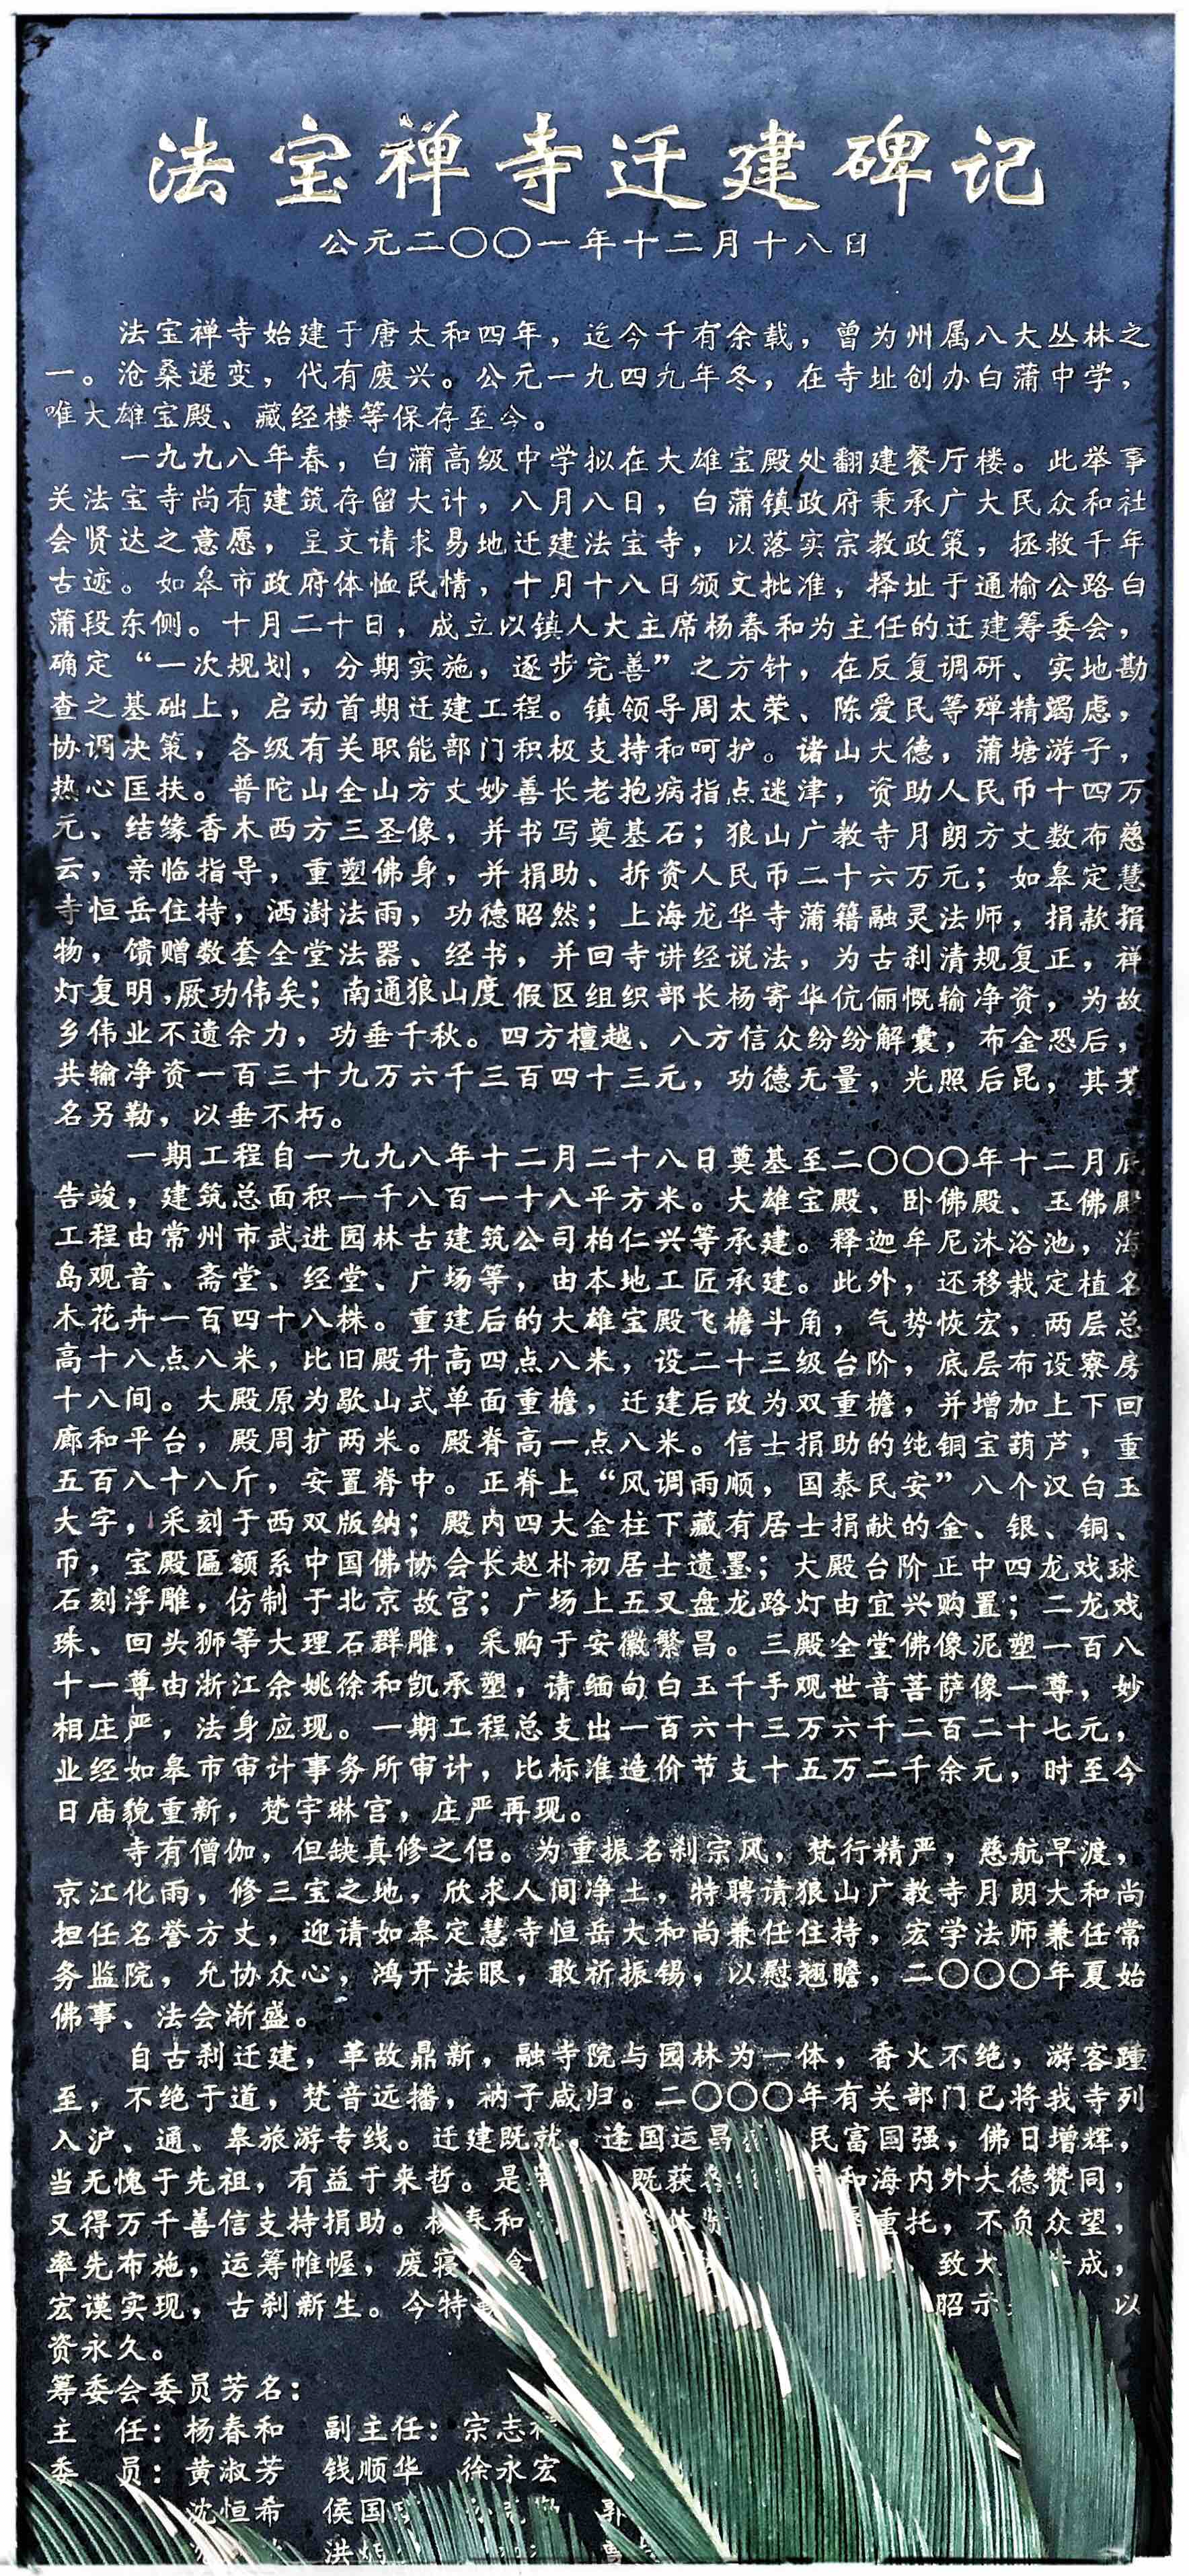 法宝禅寺迁建碑记
公元二〇〇一年十二月十八日
法宝禅寺始建于唐太和四年，迄今千有余载，曾为州属八大丛林之
一。沧桑递变，代有废兴。公元一九四九年冬，在寺址创办白蒲中学，
唯大雄宝殿、藏经楼等保存至今。
一九九八年春，白蒲高级中学拟在大雄宝殿处翻建餐厅楼。此举事
关法宝寺尚有建筑存留大计，八月八日，白蒲镇政府秉承广大民众和社
会贤达之意愿，呈文请求易地迁建法宝寺，以落实宗教政策，拯救千年
古迹。如皋市政府体恤民情，十月十八日颁文批准，择址于通榆公路白
蒲段东侧。十月二十日，成立以镇人大主席杨春和为主任的迁建筹委会，
确定“一次规划，分期实施，逐步完善”之方针，在反复调研、实地勘
查之基础上，启动首期迁建工程。镇领导周太荣、陈爱民等殚精竭虑，
协调决策，各级有关职能部门积极支持和呵护。诸山大德，蒲塘游子，
热心匡扶。普陀山全山方丈妙善长老抱病指点迷津，资助人民币十四万
元、结缘香木西方三圣像，并书写奠基石；狼山广教寺月朗方丈数布慈
云，亲临指导，重塑佛身，并捐助、拆资人民币二十六万元；如皋定慧
寺恒岳住持，洒澍法雨，功德昭然；上海龙华寺蒲籍融灵法师，捐款捐
物，馈赠数套全堂法器、经书，并回寺讲经说法，为古刹清规复正，禅
灯复明，厥功伟矣；南通狼山度假区组织部长杨寄华伉俪慨输净资，为故
乡伟业不遗余力，功垂千秋。四方檀越、八方信众纷纷解囊，布金恐后，
共输净资一百三十九万六千三百四十三元，功德无量，光照后昆，其芳
名另勒，以垂不朽。
一期工程自一九九八年十二月二十八日奠基至二〇〇〇年十二月底
告竣，建筑总面积一千八百一十八平方米。大雄宝殿、卧佛殿、玉佛殿
工程由常州市武进园林古建筑公司柏仁兴等承建。释迦牟尼沐浴池，海
岛观音、斋堂、经堂、广场等，由本地工匠承建。此外，还移栽定植名
木花卉一百四十八株。重建后的大雄宝殿飞檐斗角，气势恢宏，两层总
高十八点八米，比旧殿升高四点八米，设二十三级台阶，底层布设寮房
十八间。大殿原为歇山式单面重檐，迁建后改为双重檐，并增加上下回
廊和平台，殿周扩两米。殿脊高一点八米。信士捐助的纯铜宝葫芦，重
五百八十八斤，安置脊中。正脊上“风调雨顺，国泰民安”八个汉白玉
大字，采刻于西双版纳；殿内四大金柱下藏有居士捐献的金、银、铜、
币，宝殿匾额系中国佛协会长赵朴初居士遗墨；大殿台阶正中四龙戏球
石刻浮雕，仿制于北京故宫；广场上五叉盘龙路灯由宜兴购置；二龙戏
珠、回头狮等大理石群雕，采购于安徽繁昌。三殿全堂佛像泥塑一百八
十一尊由浙江余姚徐和凯承塑，请缅甸白玉千手观世音菩萨像一尊，妙
相庄严，法身应现。一期工程总支出一百六十三万六千二百二十七元，
业经如皋市审计事务所审计，比标准造价节支十五万二千余元，时至今
日庙貌重新，梵宇琳宫，庄严再现。
寺有僧伽，但缺真修之侣。为重振名刹宗风，梵行精严，慈航早渡，
京江化雨，修三宝之地，欣求人间净土，特聘请狼山广教寺月朗大和尚
担任名誉方丈，迎请如皋定慧寺恒岳大和尚兼任住持，宏学法师兼任常
务监院，允协众心，鸿开法眼，敢祈振锡，以慰翘瞻，二〇〇〇年夏始
佛事、法会渐盛。
自古刹迁建，革故鼎新，融寺院与园林为一体，香火不绝，游客踵
至，不绝于道，梵音远播，衲子咸归。二〇〇〇年有关部门已将我寺列
入沪、通、皋旅游专线。迁建既就，逢国运昌 民富国强，佛日增辉，
当无愧于先祖，有益于来哲。是 既获 和海内外大德赞同，
又得万千善信支持捐助。杨春和 重托，不负众望，
率先布施，运筹帷幄，废寝 致大 成，
宏谟实现，古刹新生。今特 昭示 以
资永久。
筹委会委员芳名：
主 任：杨春和 副主任：宗志
委 员：黄淑芳 钱顺华 徐永宏
沈恒希 侯国
洪